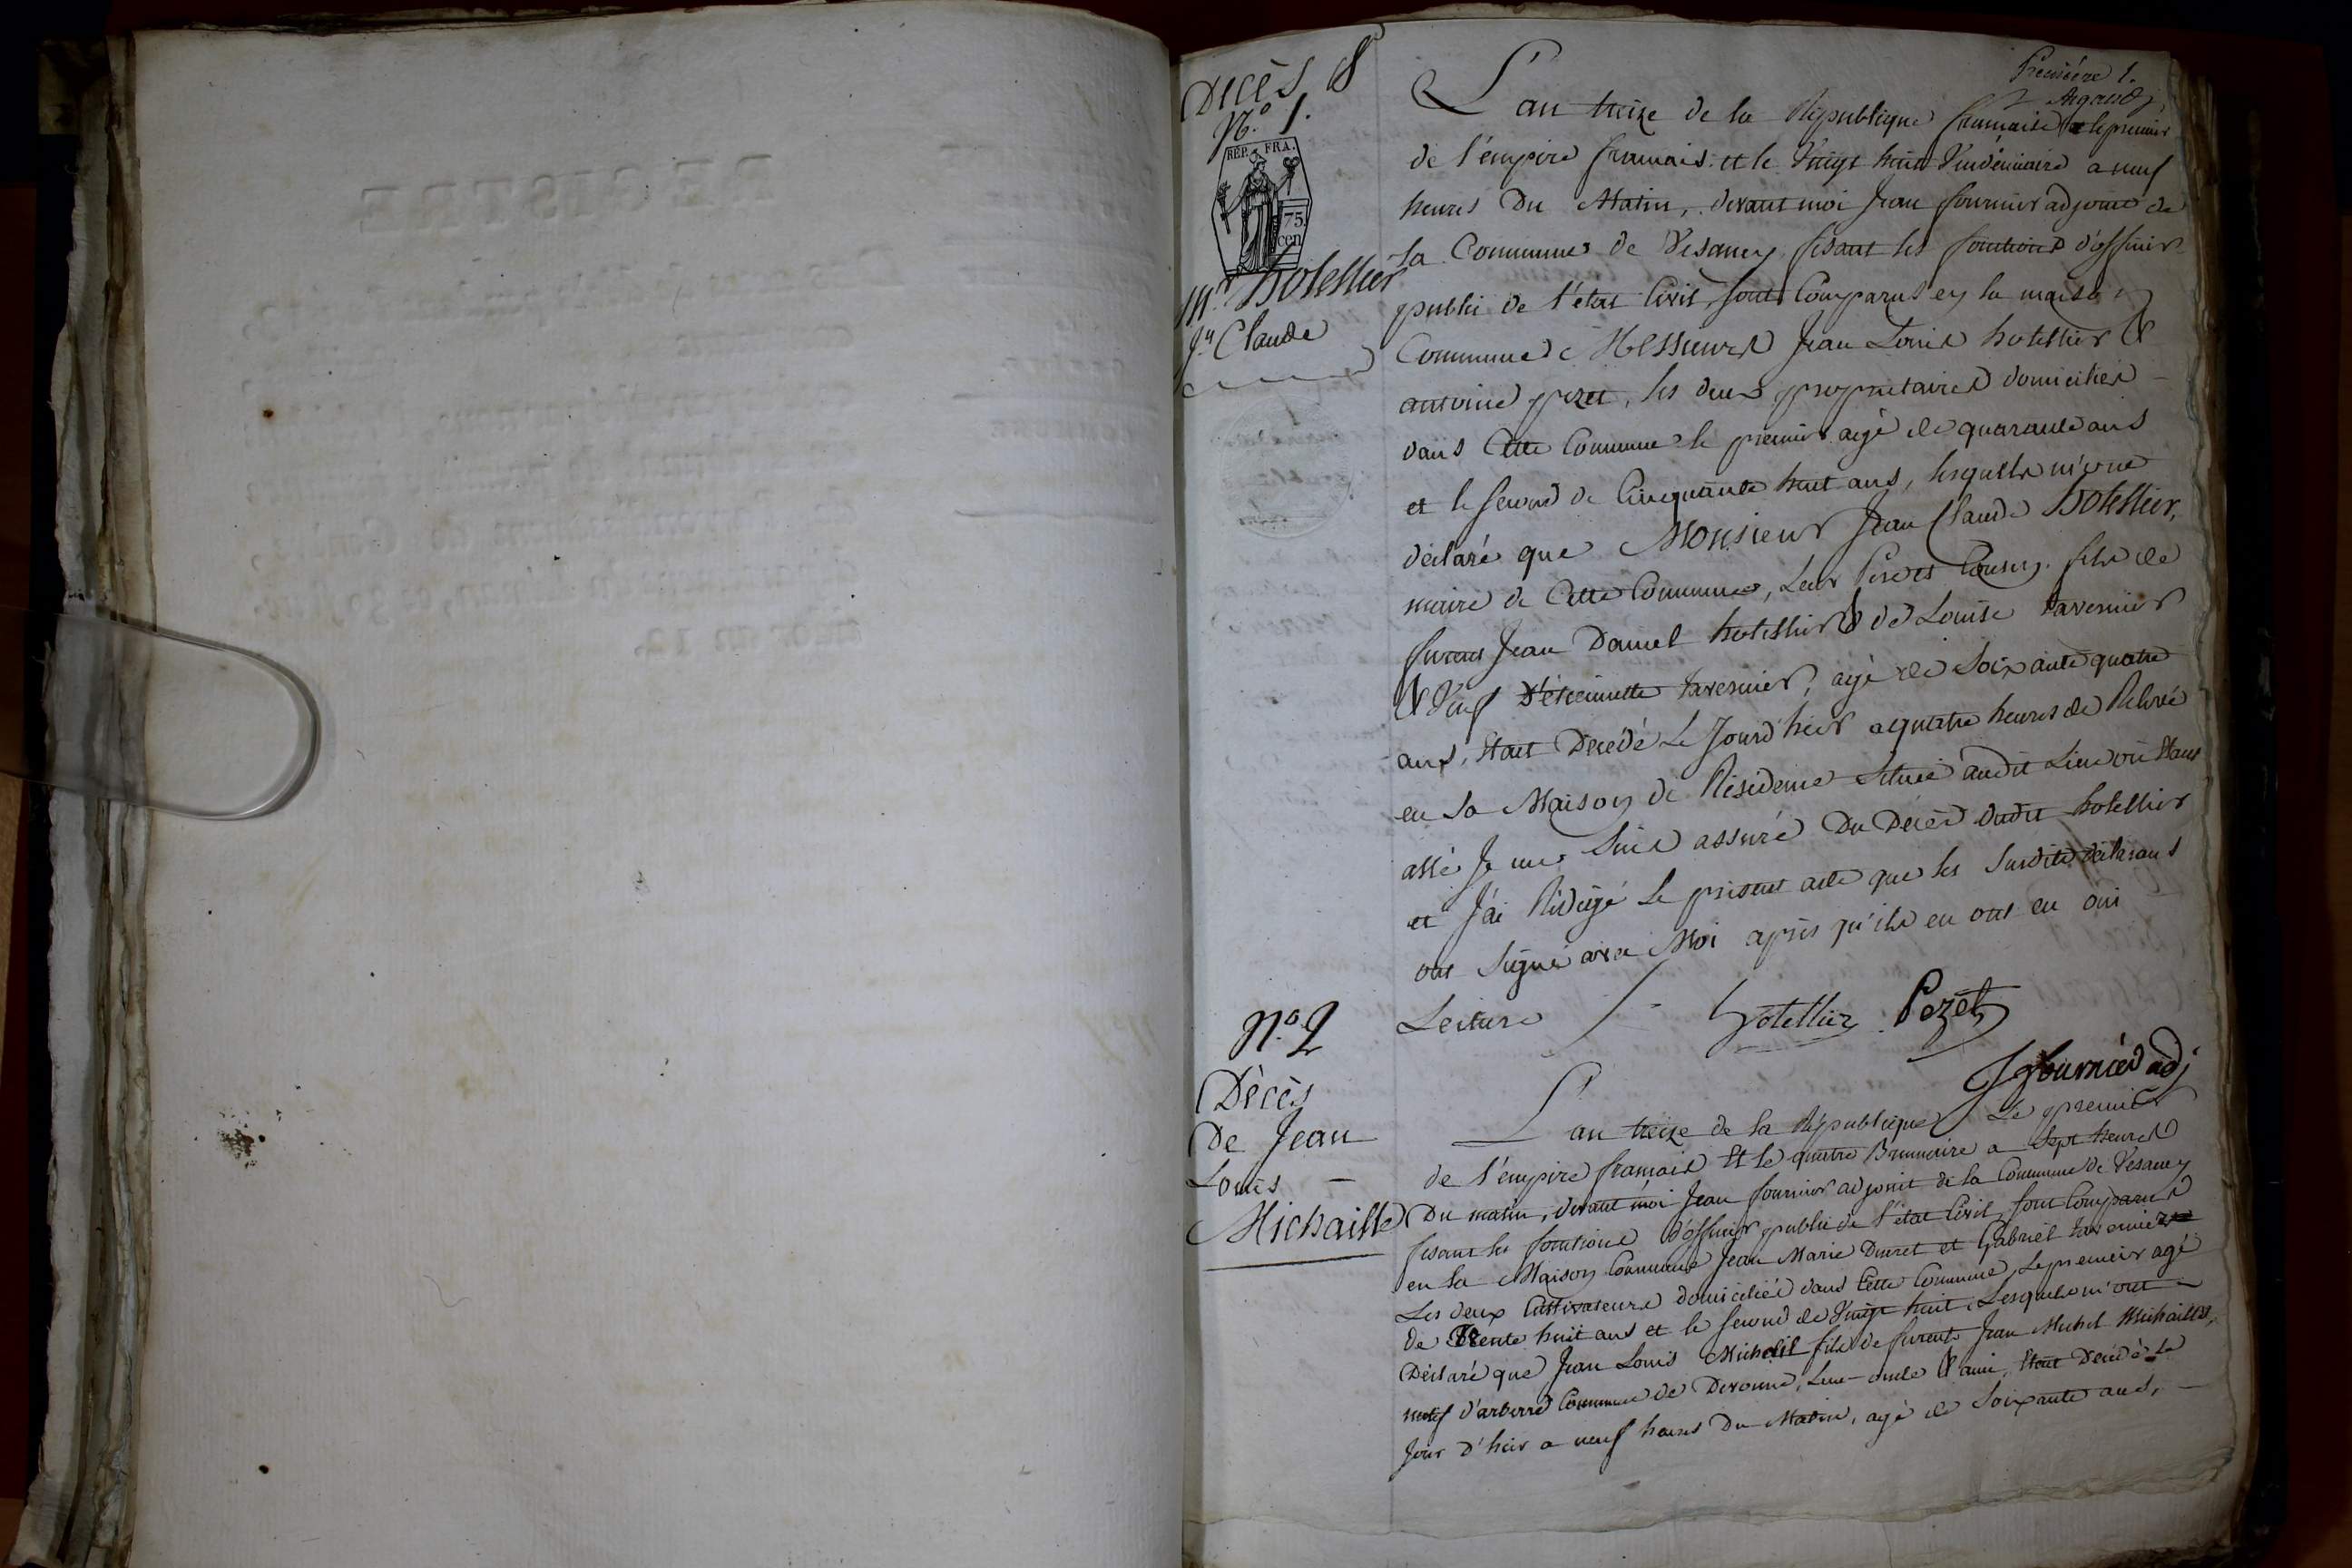 Décès 8
N.º 1.
RÉP. FRA.
75.
cen
M.r hotellier
J.n Claude
Première 1.
L'an treize de la République française et le premier
de l'empire français et le vingt huit Vendémiaire a neuf
heures Du Matin, devant moi Jean fournier adjoint de
la Commune de Vesancy fesant les fonctions d'officier
public de l'état Civil, sont Comparus en la maison
Commune Messieurs Jean Louis hotellier &
antoine pezet, les deux propriétaires domiciliés
dans Cette Commune le premier agé de quarante ans
et le second de Cinquante huit ans, lesquels m'ont
déclaré que Monsieur Jean Claude Hotellier,
maire de Cette Commune, leur Cousin, fils de
furent Jean Daniel hotellier & de Louise tavernier
& Veuf d'étiennette tavernier, agé de Soixante quatre
ans, Etait Décédé Le Jourd'hier a quatre heures de Relevée
en sa Maison de Résidence Située audit Lieu où Etant
allé Je me Suis assuré Du Décès dudit hotellier
et J'ai Rédigé Le présent acte que les Susdits déclarants
ont Signé avec Moi après qu'ils en ont eu oui
Lecture Hotellier Pezet
J fournier adj
N.º 2
Décès
De Jean
Louis
Michaille
L'an treize de la République Le premier
de l'empire français Et le quatre Brumaire a Sept heures
Du matin, devant moi Jean fournier adjoint de la Commune de Vesancy
fesant les fonctions d'officier public de l'état Civil, sont Comparus
en la Maison Commune Jean Marie Duret et Gabriel tavernier
Les deux Cultivateurs domiciliés dans Cette Commune, Le premier agé
de trente huit ans et le second de Vingt huit, Lesquels m'ont
Déclaré que Jean Louis Michaille fils de furent Jean Michel Michaille,
natif d'arberre Commune de Divonne, Leur oncle & ami, Etait Décédé Le
Jour d'hier a neuf heures Du Matin, agé de Soixante ans,